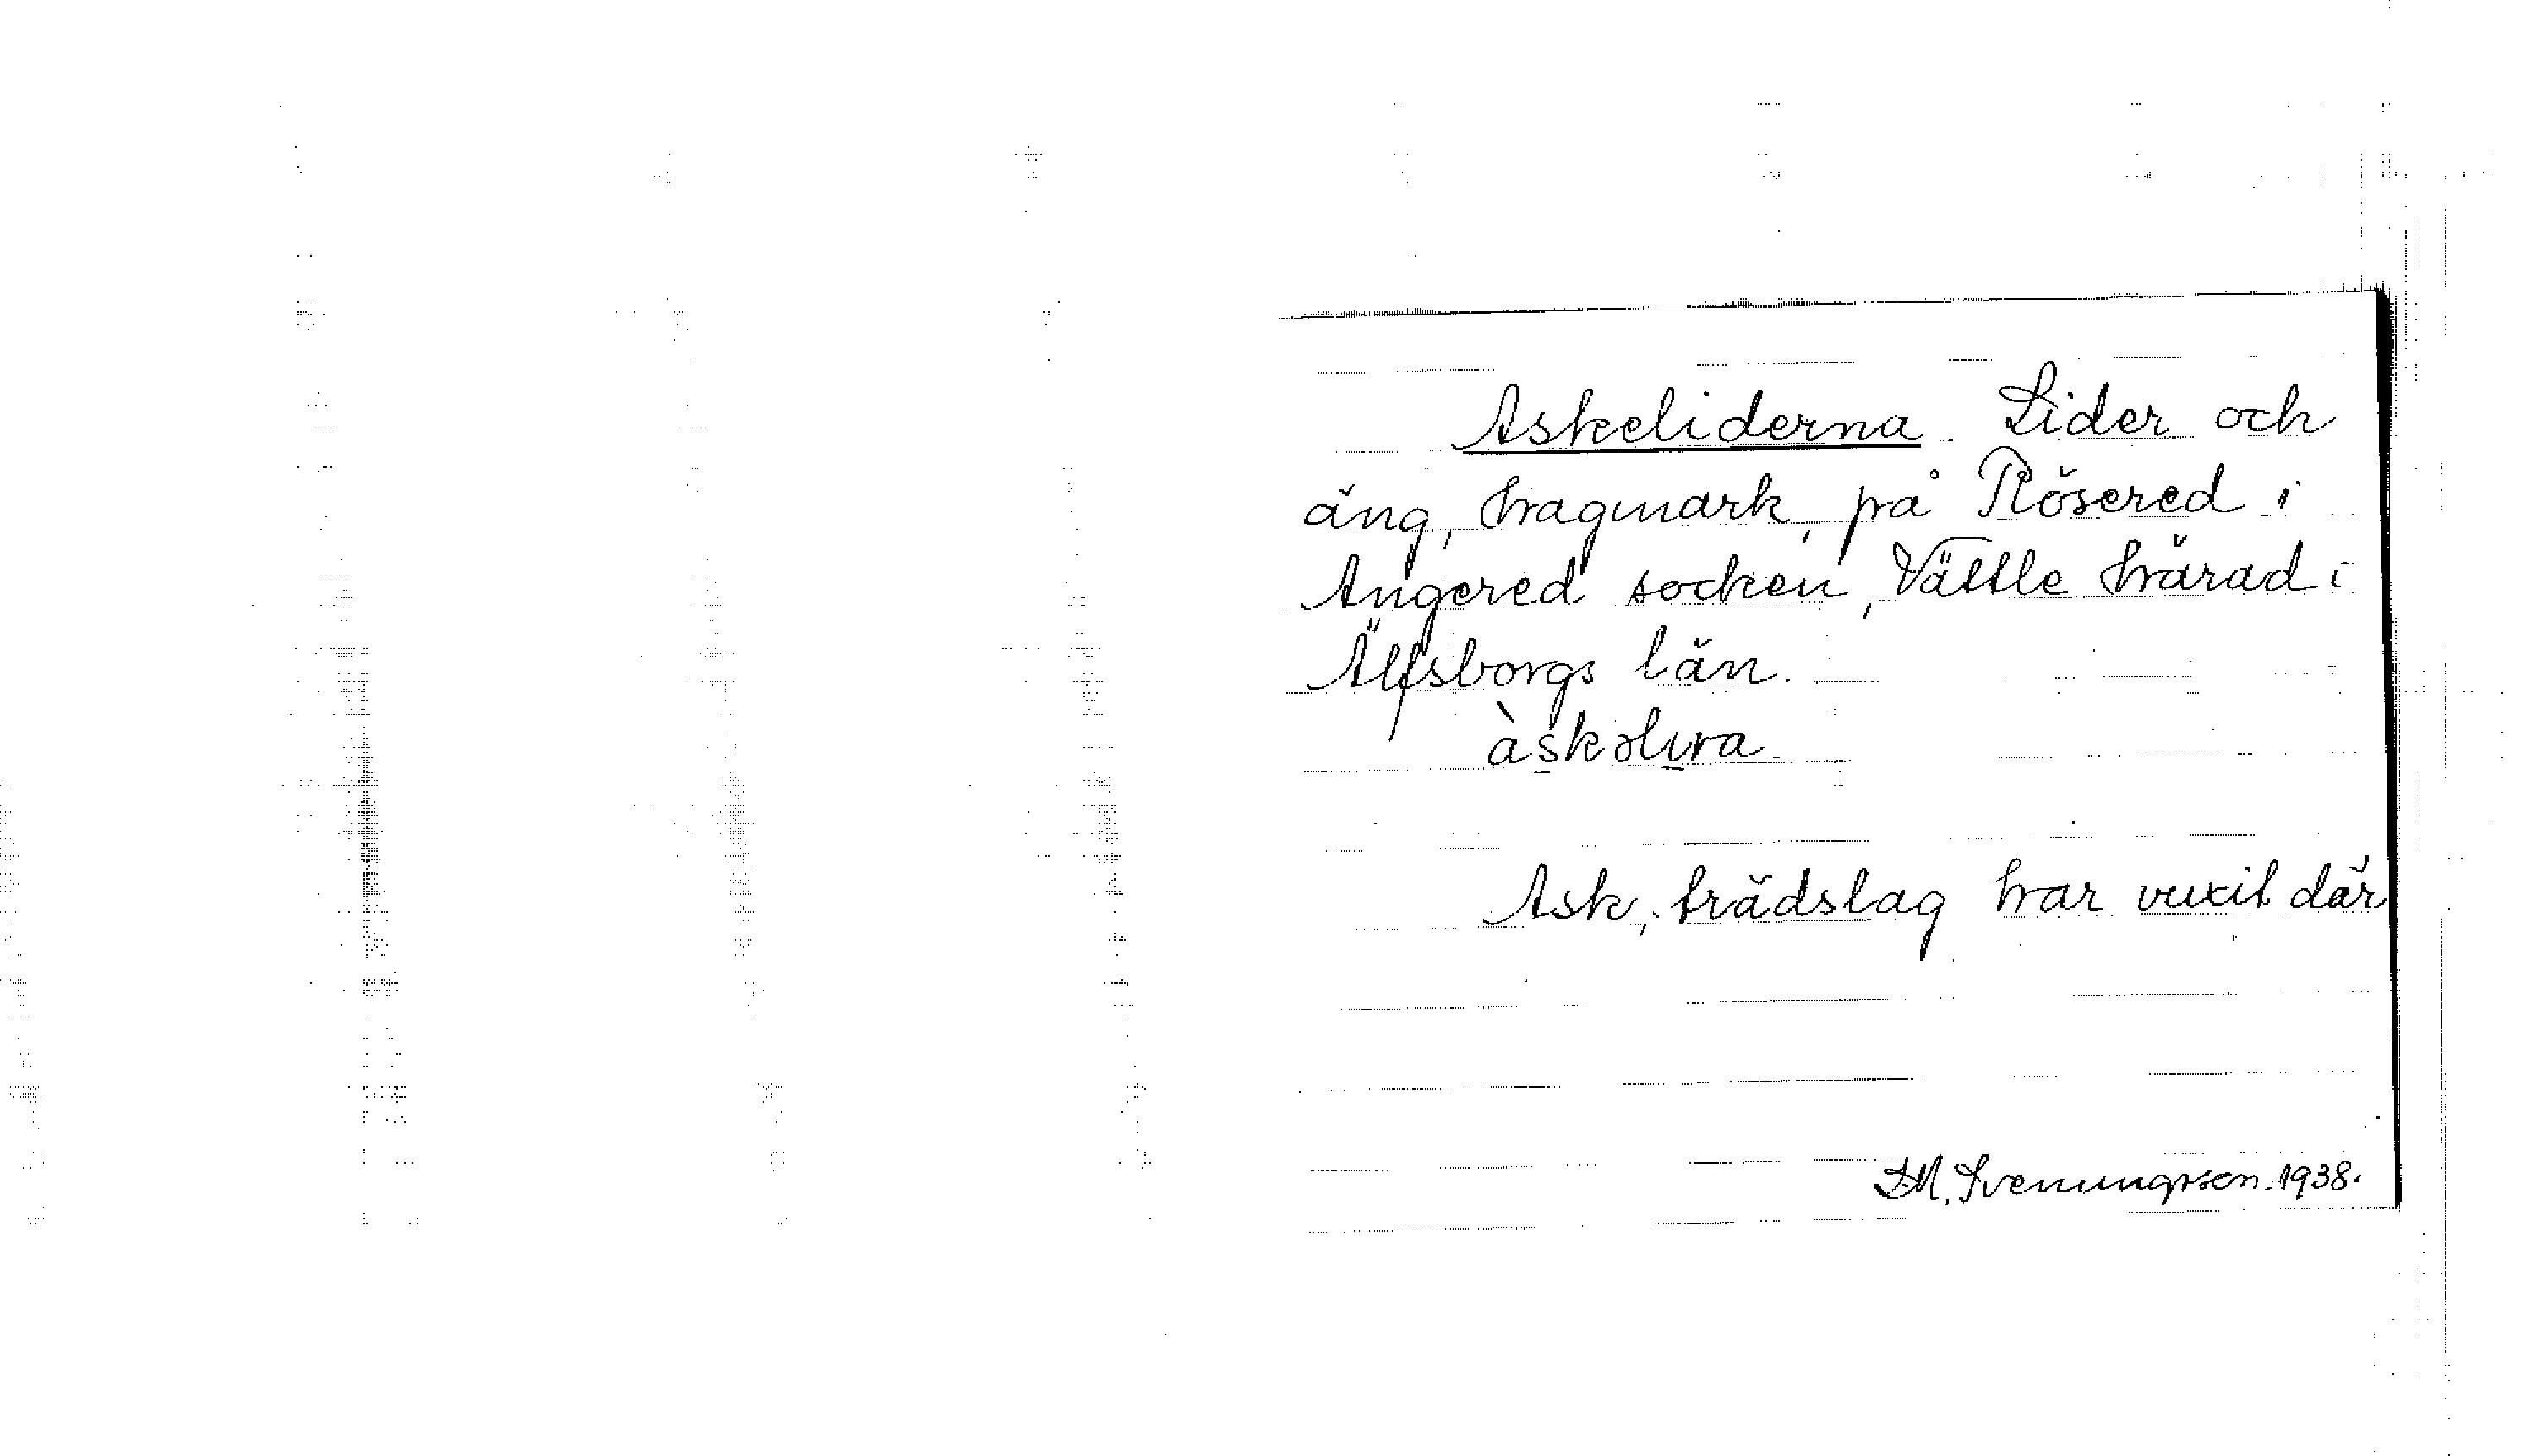 Askeliderna. Lider och
äng, hagmark, på Rösered i
Angered socken, Vättle härad i
Älfsborgs län.
àskəlıra
Ask, trädslag har vuxit där
D.M. Svenungsson. 1938.